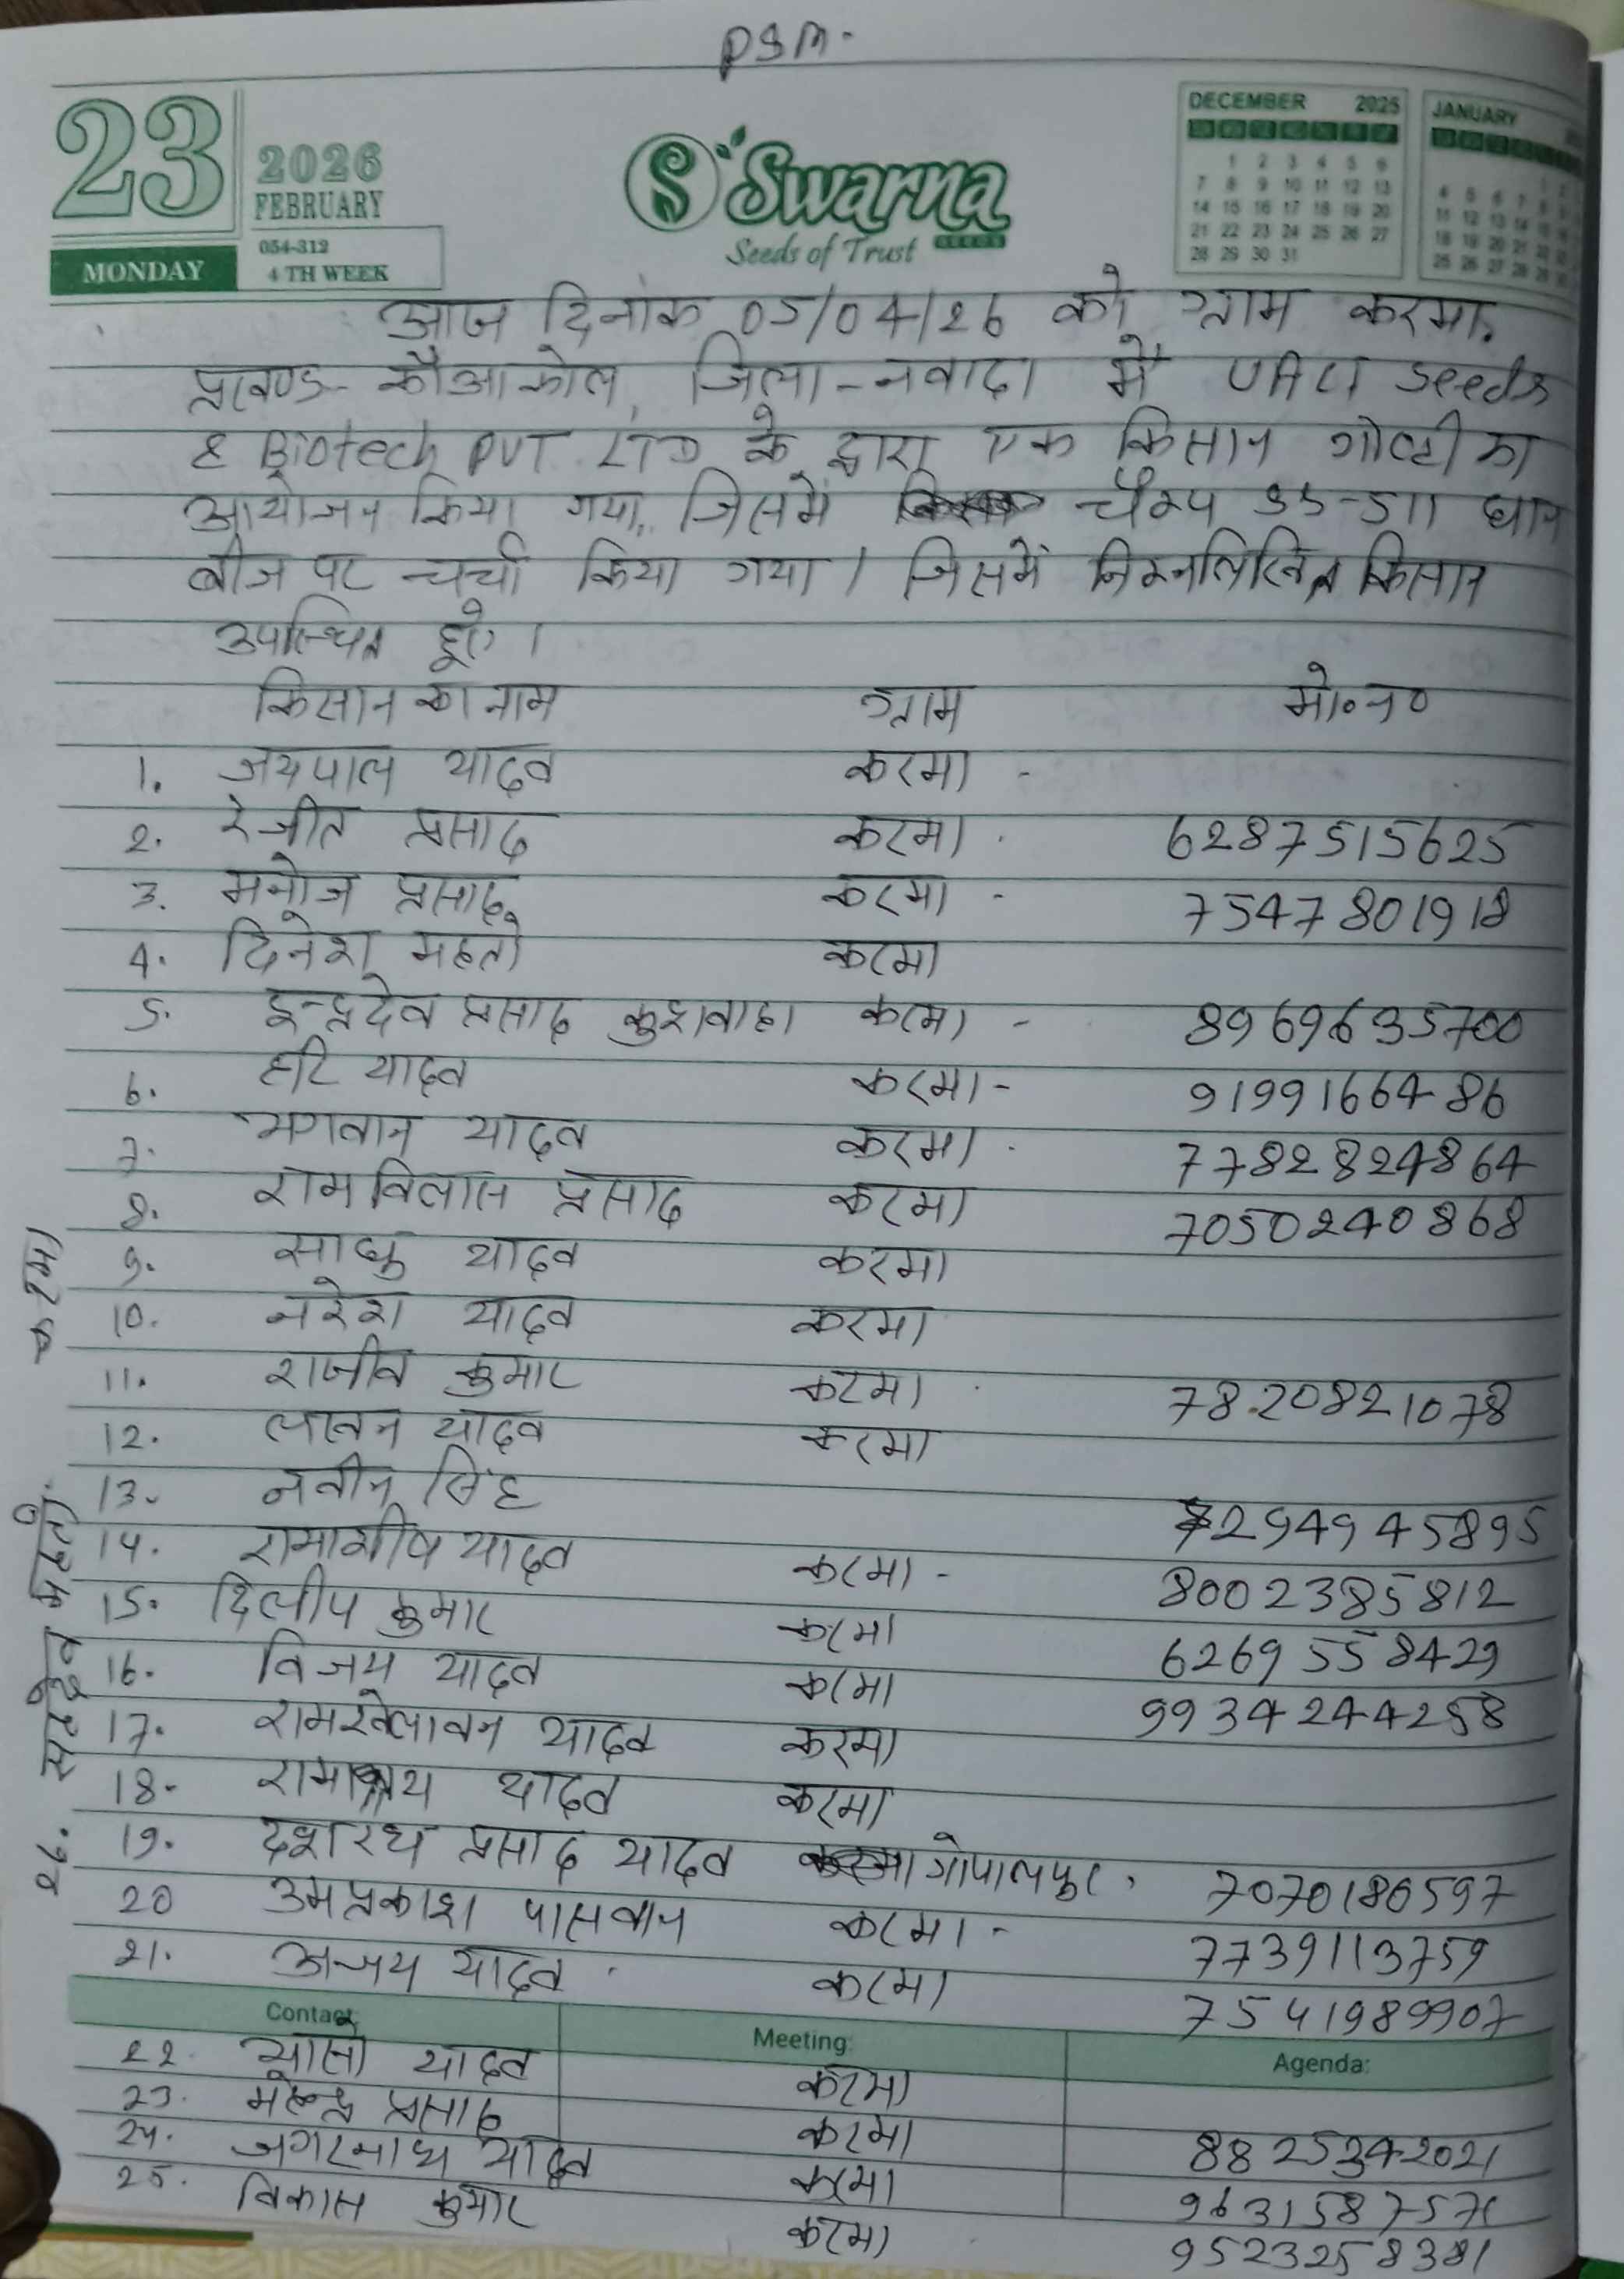 PSM.
23
2026
FEBRUARY
MONDAY
054-312
4 TH WEEK
Swarna
SEEDS
Seeds of Trust
DECEMBER 2025
1 2 3 4 5 6
7 8 9 10 11 12 13
14 15 16 17 18 19 20
21 22 23 24 25 26 27
28 29 30 31
JANUARY
आज दिनांक 05/04/26 को ग्राम करमा,
प्रखण्ड- कौआकोल, जिला-नवादा में Seeds
& Biotech PVT LTD के द्वारा एक किसान गोष्टी का
आयोजन किया गया, जिसमें चैम्प SS-511 धान
बीज पर चर्चा किया गया। जिसमें निम्नलिखित किसान
उपस्थित हुए।
किसान का नाम ग्राम मो०न०
1. जयपाल यादव करमा -
2. रंजीत प्रसाद करमा 6287515625
3. मनोज प्रसाद करमा - 7547801918
4. दिनेश महतो करमा
5. इन्द्रदेव प्रसाद कुशवाहा करमा - 8969635700
6. हरि यादव करमा - 9199166486
7. भगवान यादव करमा 7782824864
8. रामविलास प्रसाद करमा 7050240868
9. साधु यादव करमा
10. नरेश यादव करमा
11. राजीव कुमार करमा 7820821078
12. यादव करमा
13. नवीन सिंह 7294945895
14. रामाशीष यादव करमा - 8002385812
15. दिलीप कुमार करमा 6269558429
16. विजय यादव करमा 9934244258
17. रामखेलावन यादव करमा
18. यादव करमा
19. दशरथ प्रसाद यादव गोपालपुर 7070186597
20 उमप्रकाश पासवान करमा - 7739113759
21. अजय यादव करमा 7541989907
Contact: Meeting: Agenda:
22. यादव करमा
23. महेन्द्र प्रसाद करमा 8825342021
24. जगरनाथ यादव करमा
25. विकास कुमार करमा 9523258381
26. सहदेव महतो करमा